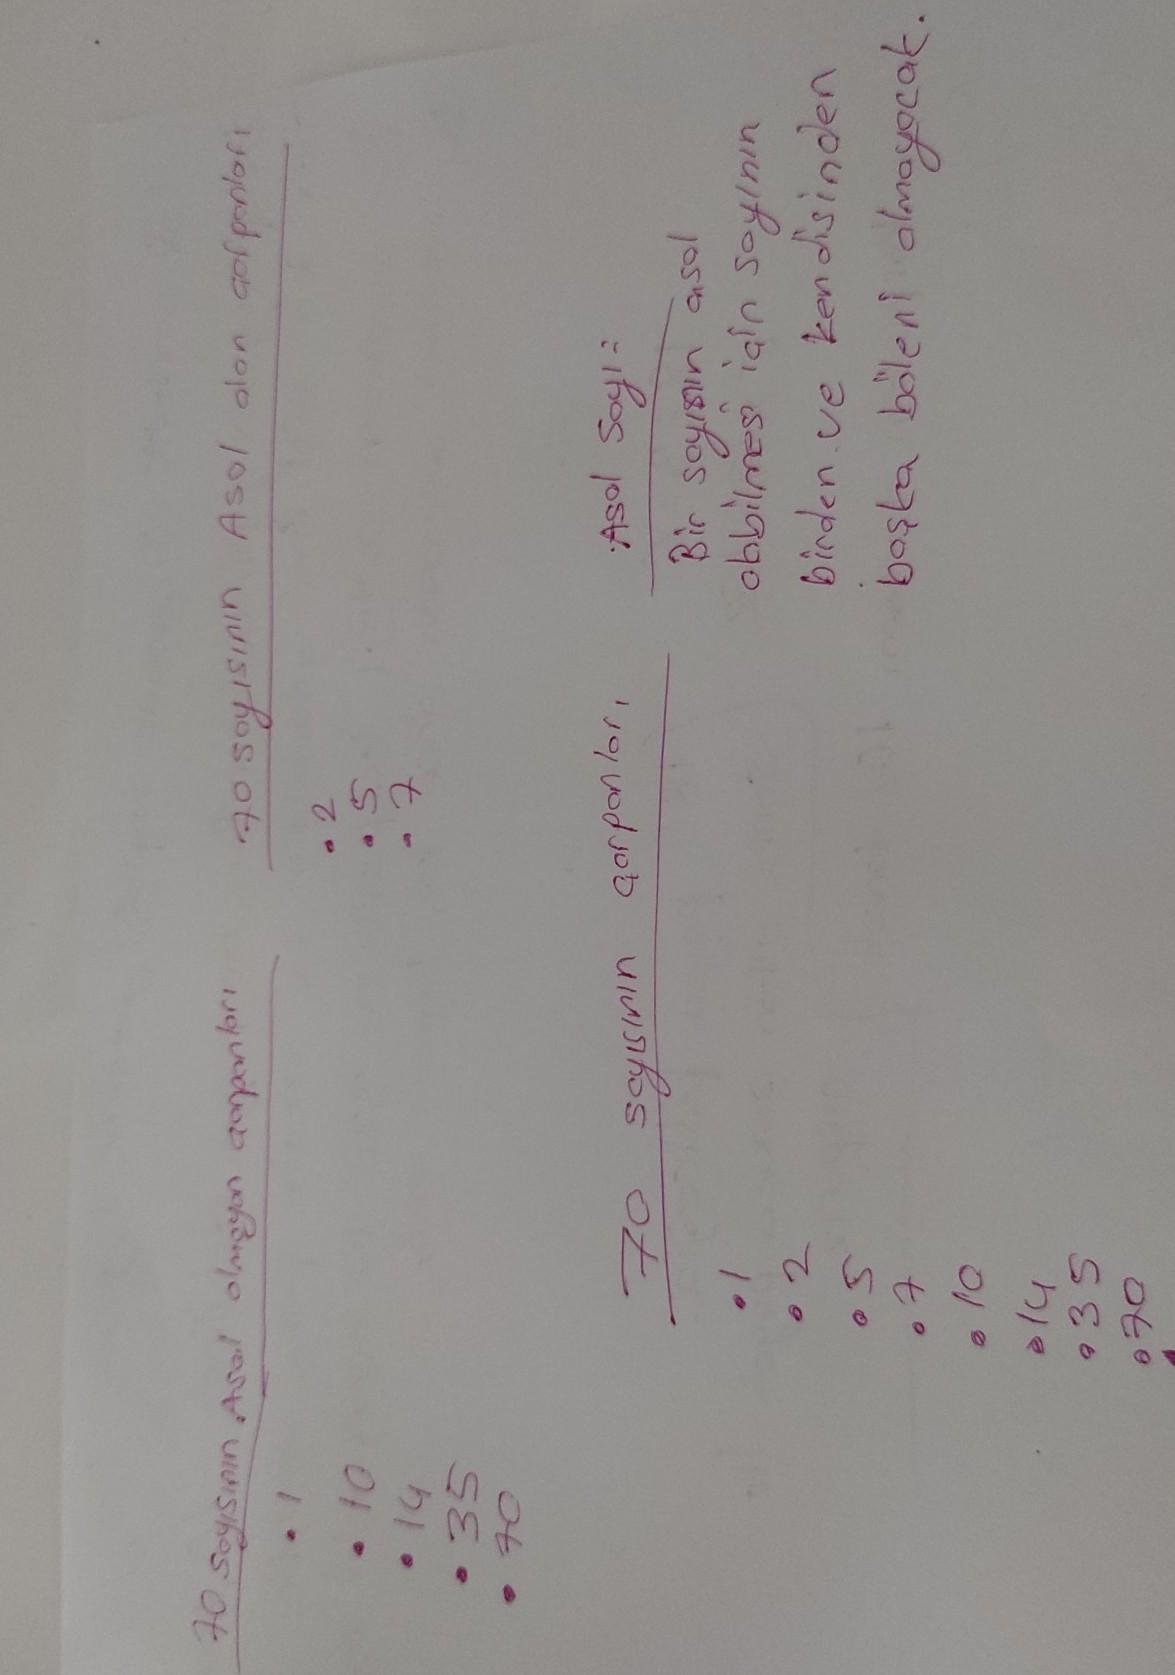 70 sayısının Asal olmayan çarpanları
• 1
• 10
• 14
• 35
• 70
70 sayısının Asal olan çarpanları
• 2
• 5
• 7
70 sayısının çarpanları
• 1
• 2
• 5
• 7
• 10
• 14
• 35
• 70
Asal Sayı:
Bir sayısın asal
olabilmesi için sayının
birden ve kendisinden
başka böleni olmayacak.